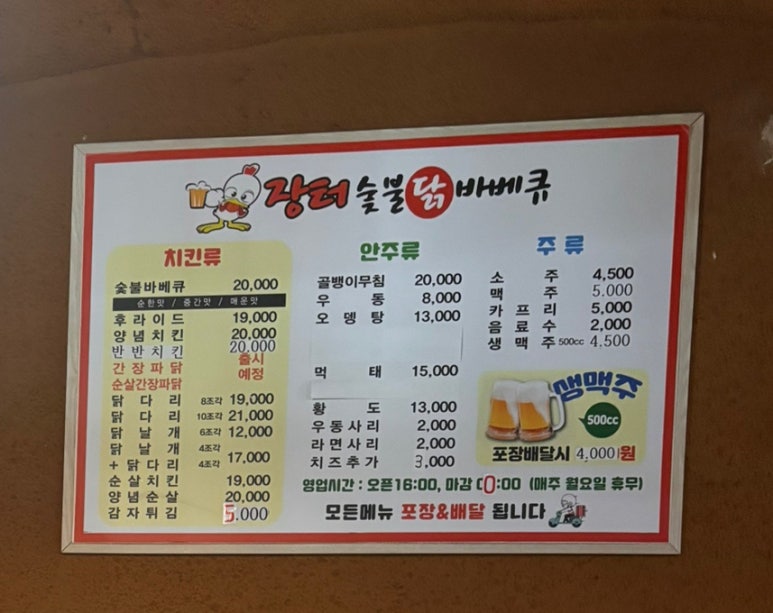 장터 숯불 닭 바베큐
치킨류
숯불바베큐 20,000
순한맛 / 중간맛 / 매운맛
후라이드 19,000
양념치킨 20,000
반반치킨 20,000
간장파닭 출시
순살간장파닭 예정
닭다리 8조각 19,000
닭다리 10조각 21,000
닭날개 6조각 12,000
닭날개 4조각
+ 닭다리 4조각 17,000
순살치킨 19,000
양념순살 20,000
감자튀김 5,000
안주류
골뱅이무침 20,000
우동 8,000
오뎅탕 13,000
먹태 15,000
황도 13,000
우동사리 2,000
라면사리 2,000
치즈추가 3,000
주류
소주 4,500
맥주 5,000
카프리 5,000
음료수 2,000
생맥주 500cc 4,500
생맥주
500cc
포장배달시 4,000원
영업시간 : 오픈16:00, 마감 00:00 (매주 월요일 휴무)
모든메뉴 포장&배달 됩니다